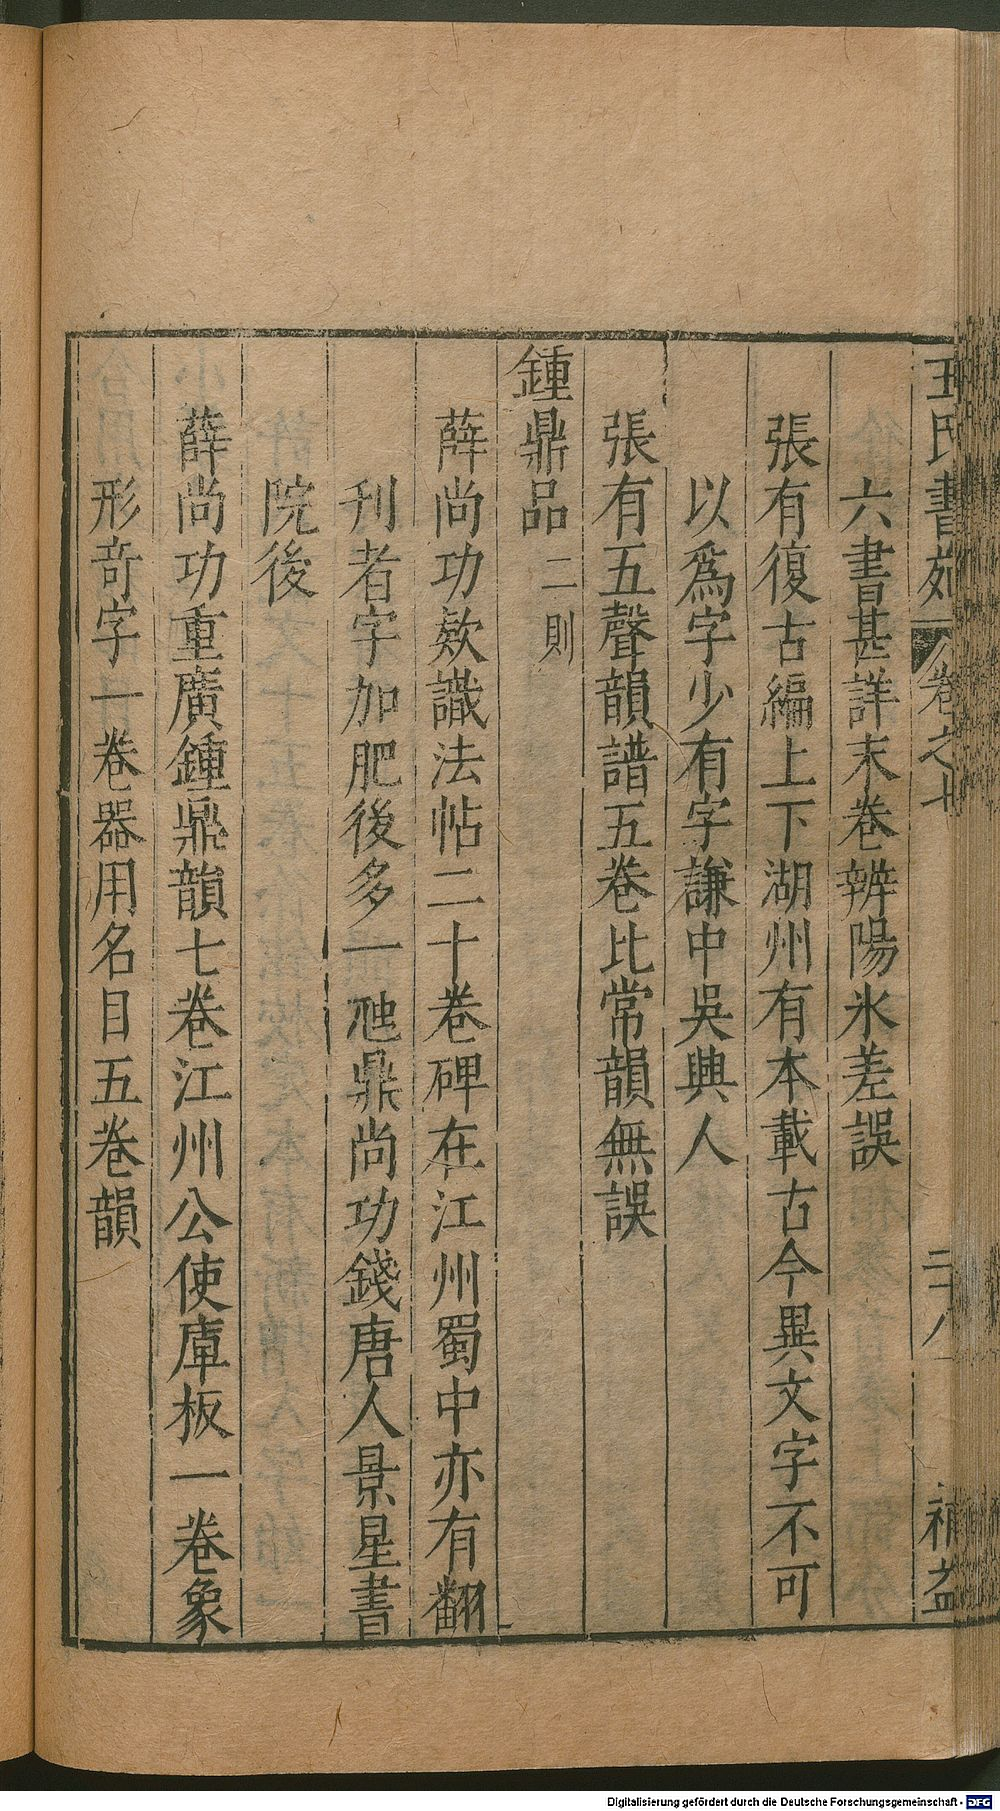 王氏書苑 卷之十 二十八 補益
六書甚詳末卷辨陽氷差誤
張有復古編上下湖州有本載古今異文字不可
以爲字少有字謙中吳興人
張有五聲韻譜五卷比常韻無誤
鍾鼎品 二則
薛尚功欵識法帖二十卷碑在江州蜀中亦有翻
刊者字加肥後多一虺鼎尚功錢唐人景星書
院後
薛尚功重廣鍾鼎韻七卷江州公使庫板一卷象
形奇字一卷器用名目五卷韻
Digitalisierung gefördert durch die Deutsche Forschungsgemeinschaft - DFG